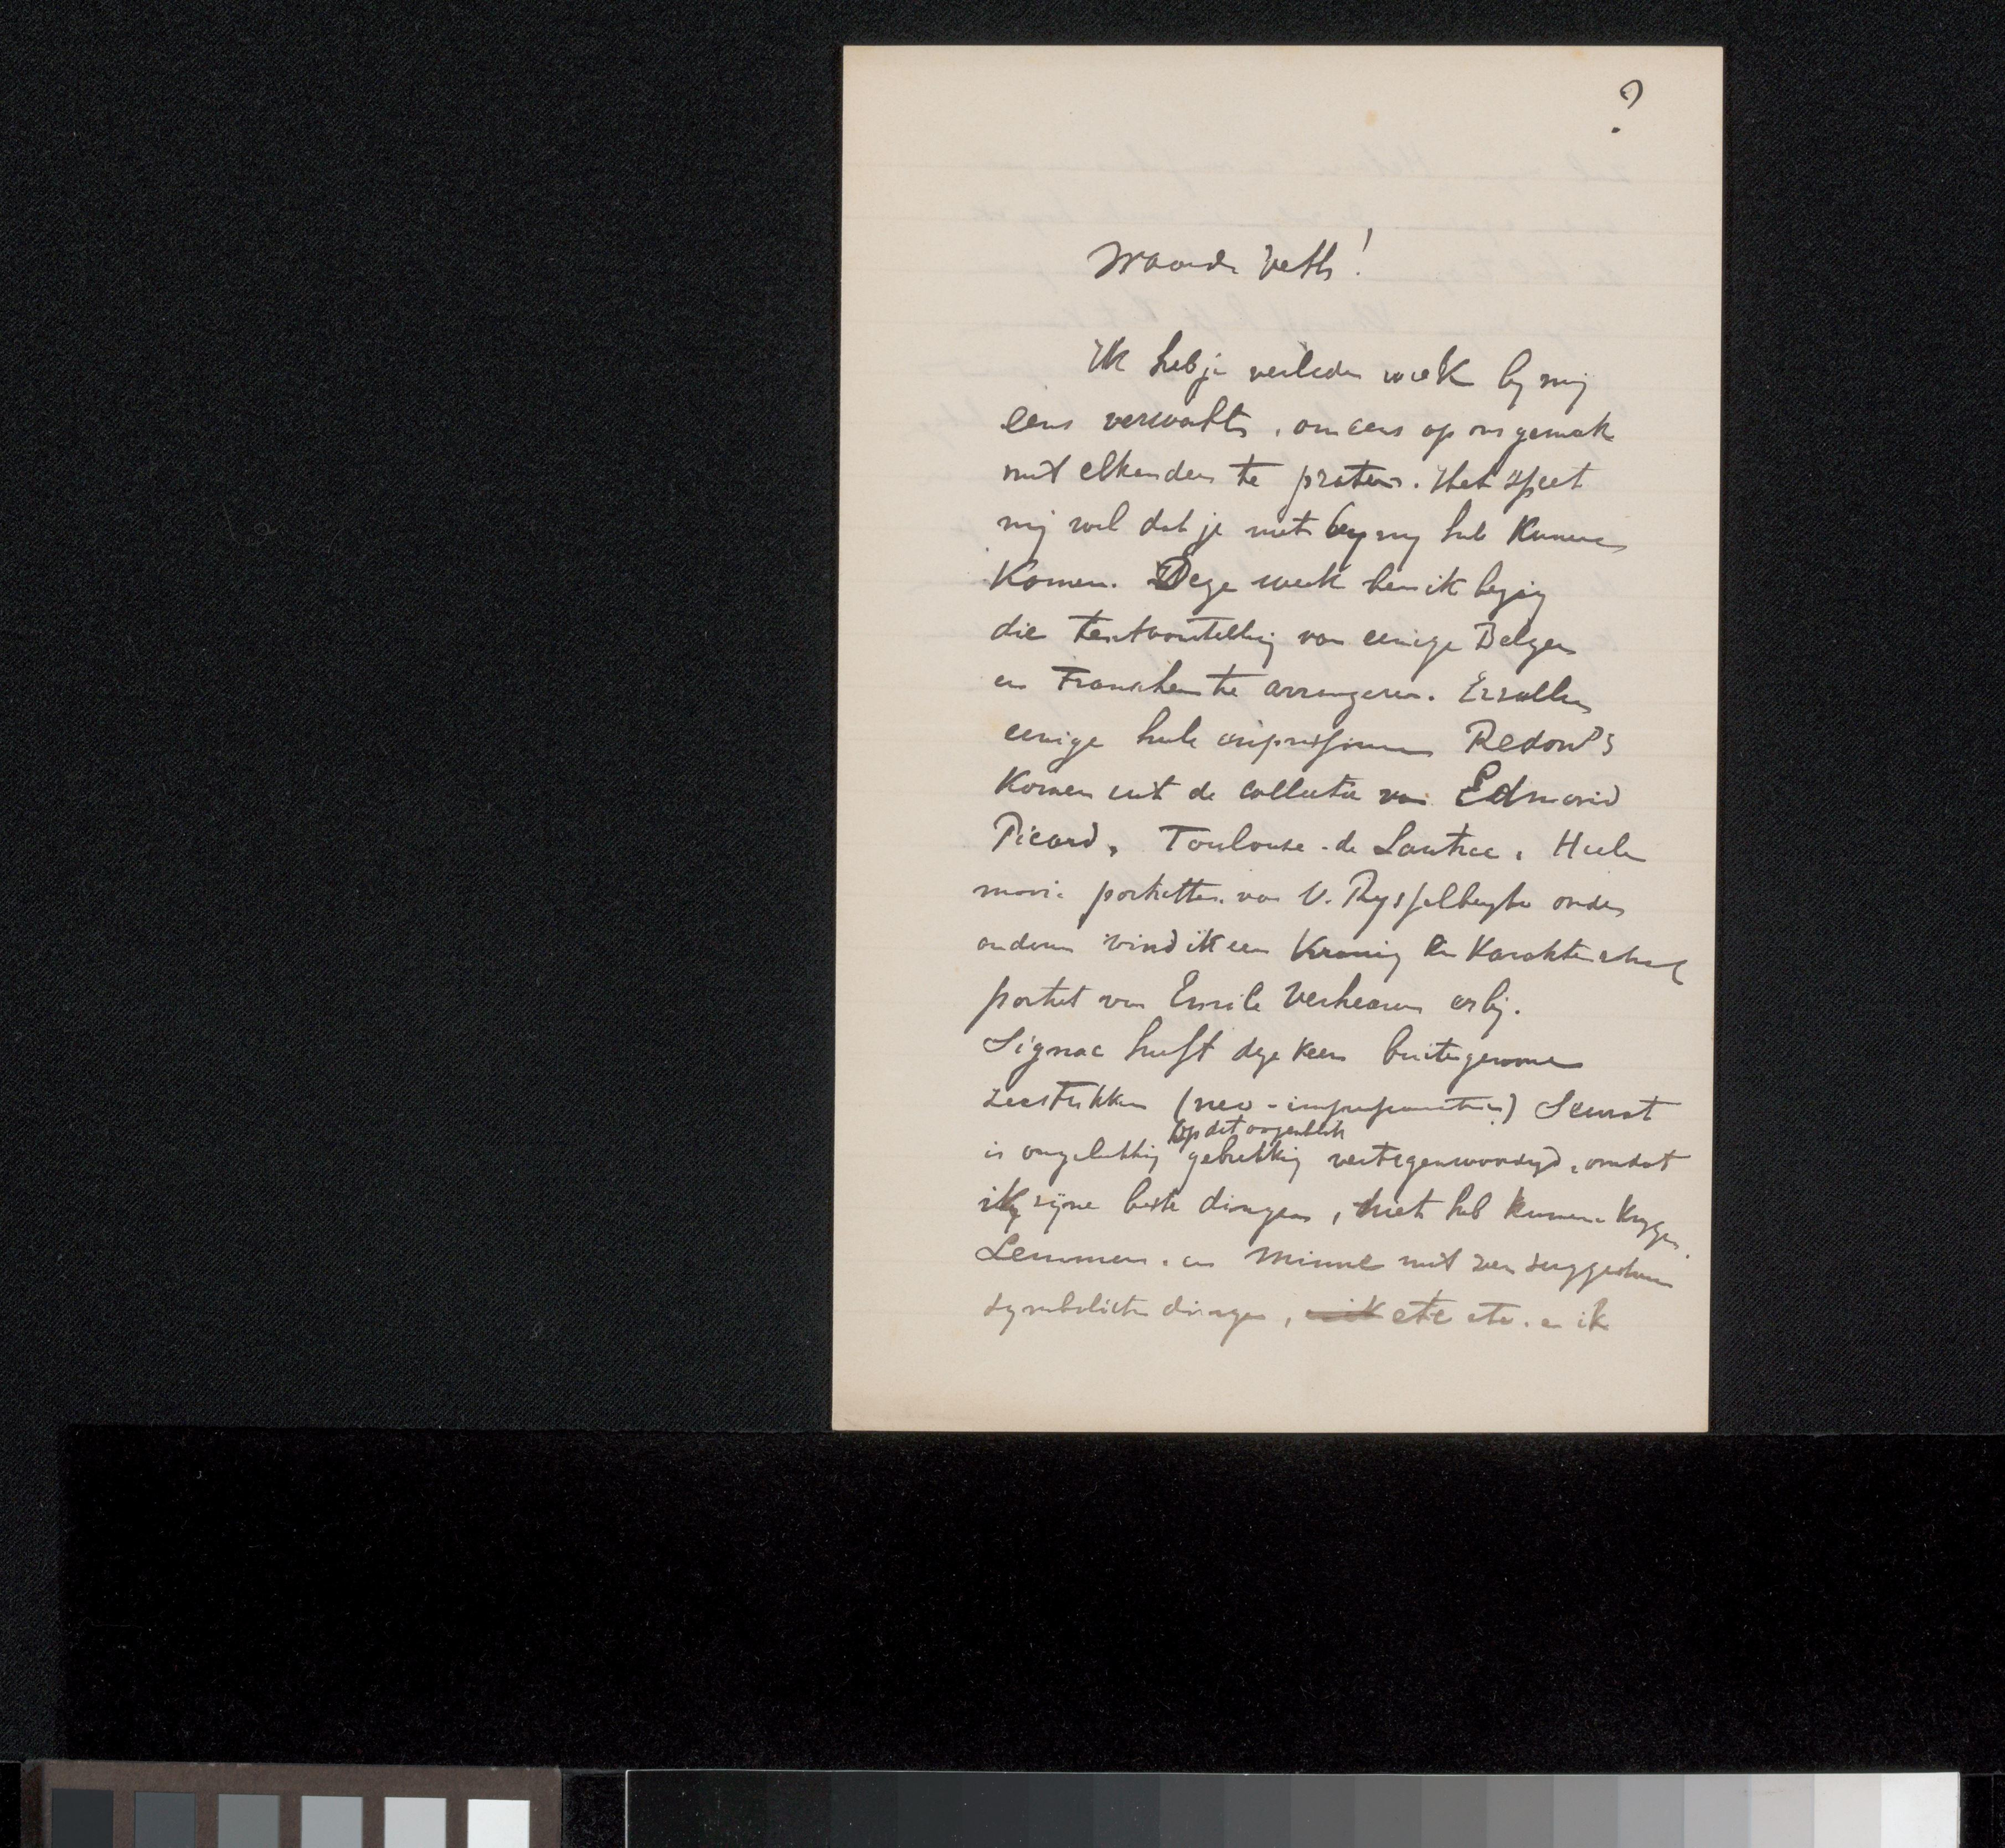 ?
Waarde Veth!
Ik heb je verleden week by mij
eens verwacht, om eens op ons gemak
met elkander te praten. Het speet
mij wel dat je niet by my heb kunnen
komen. Deze week ben ik bezig
die tentoonstelling van eenige Belgen
en Franschen te arrangeren. Er zullen
eenige hele Redon's
komen uit de collectie van Edmond
Picard, Toulouse de Lautrec, Heele
mooie portretten van V. Rysselberghe onder
anderen vind ik een kranig en karaktervol
portret van Emile Verhearen erbij.
Signac heeft deze keer buitengewone
zeestukken (neo-impressionisten) Seurat
is ongelukkig op dit oogenblik gebrekkig vertegenwoordigd, omdat
ik zijne beste dingen, niet heb kunnen krygen.
Lemmen. en Minne met zeer suggestieve
symbolische dingen, etc etc. en ik